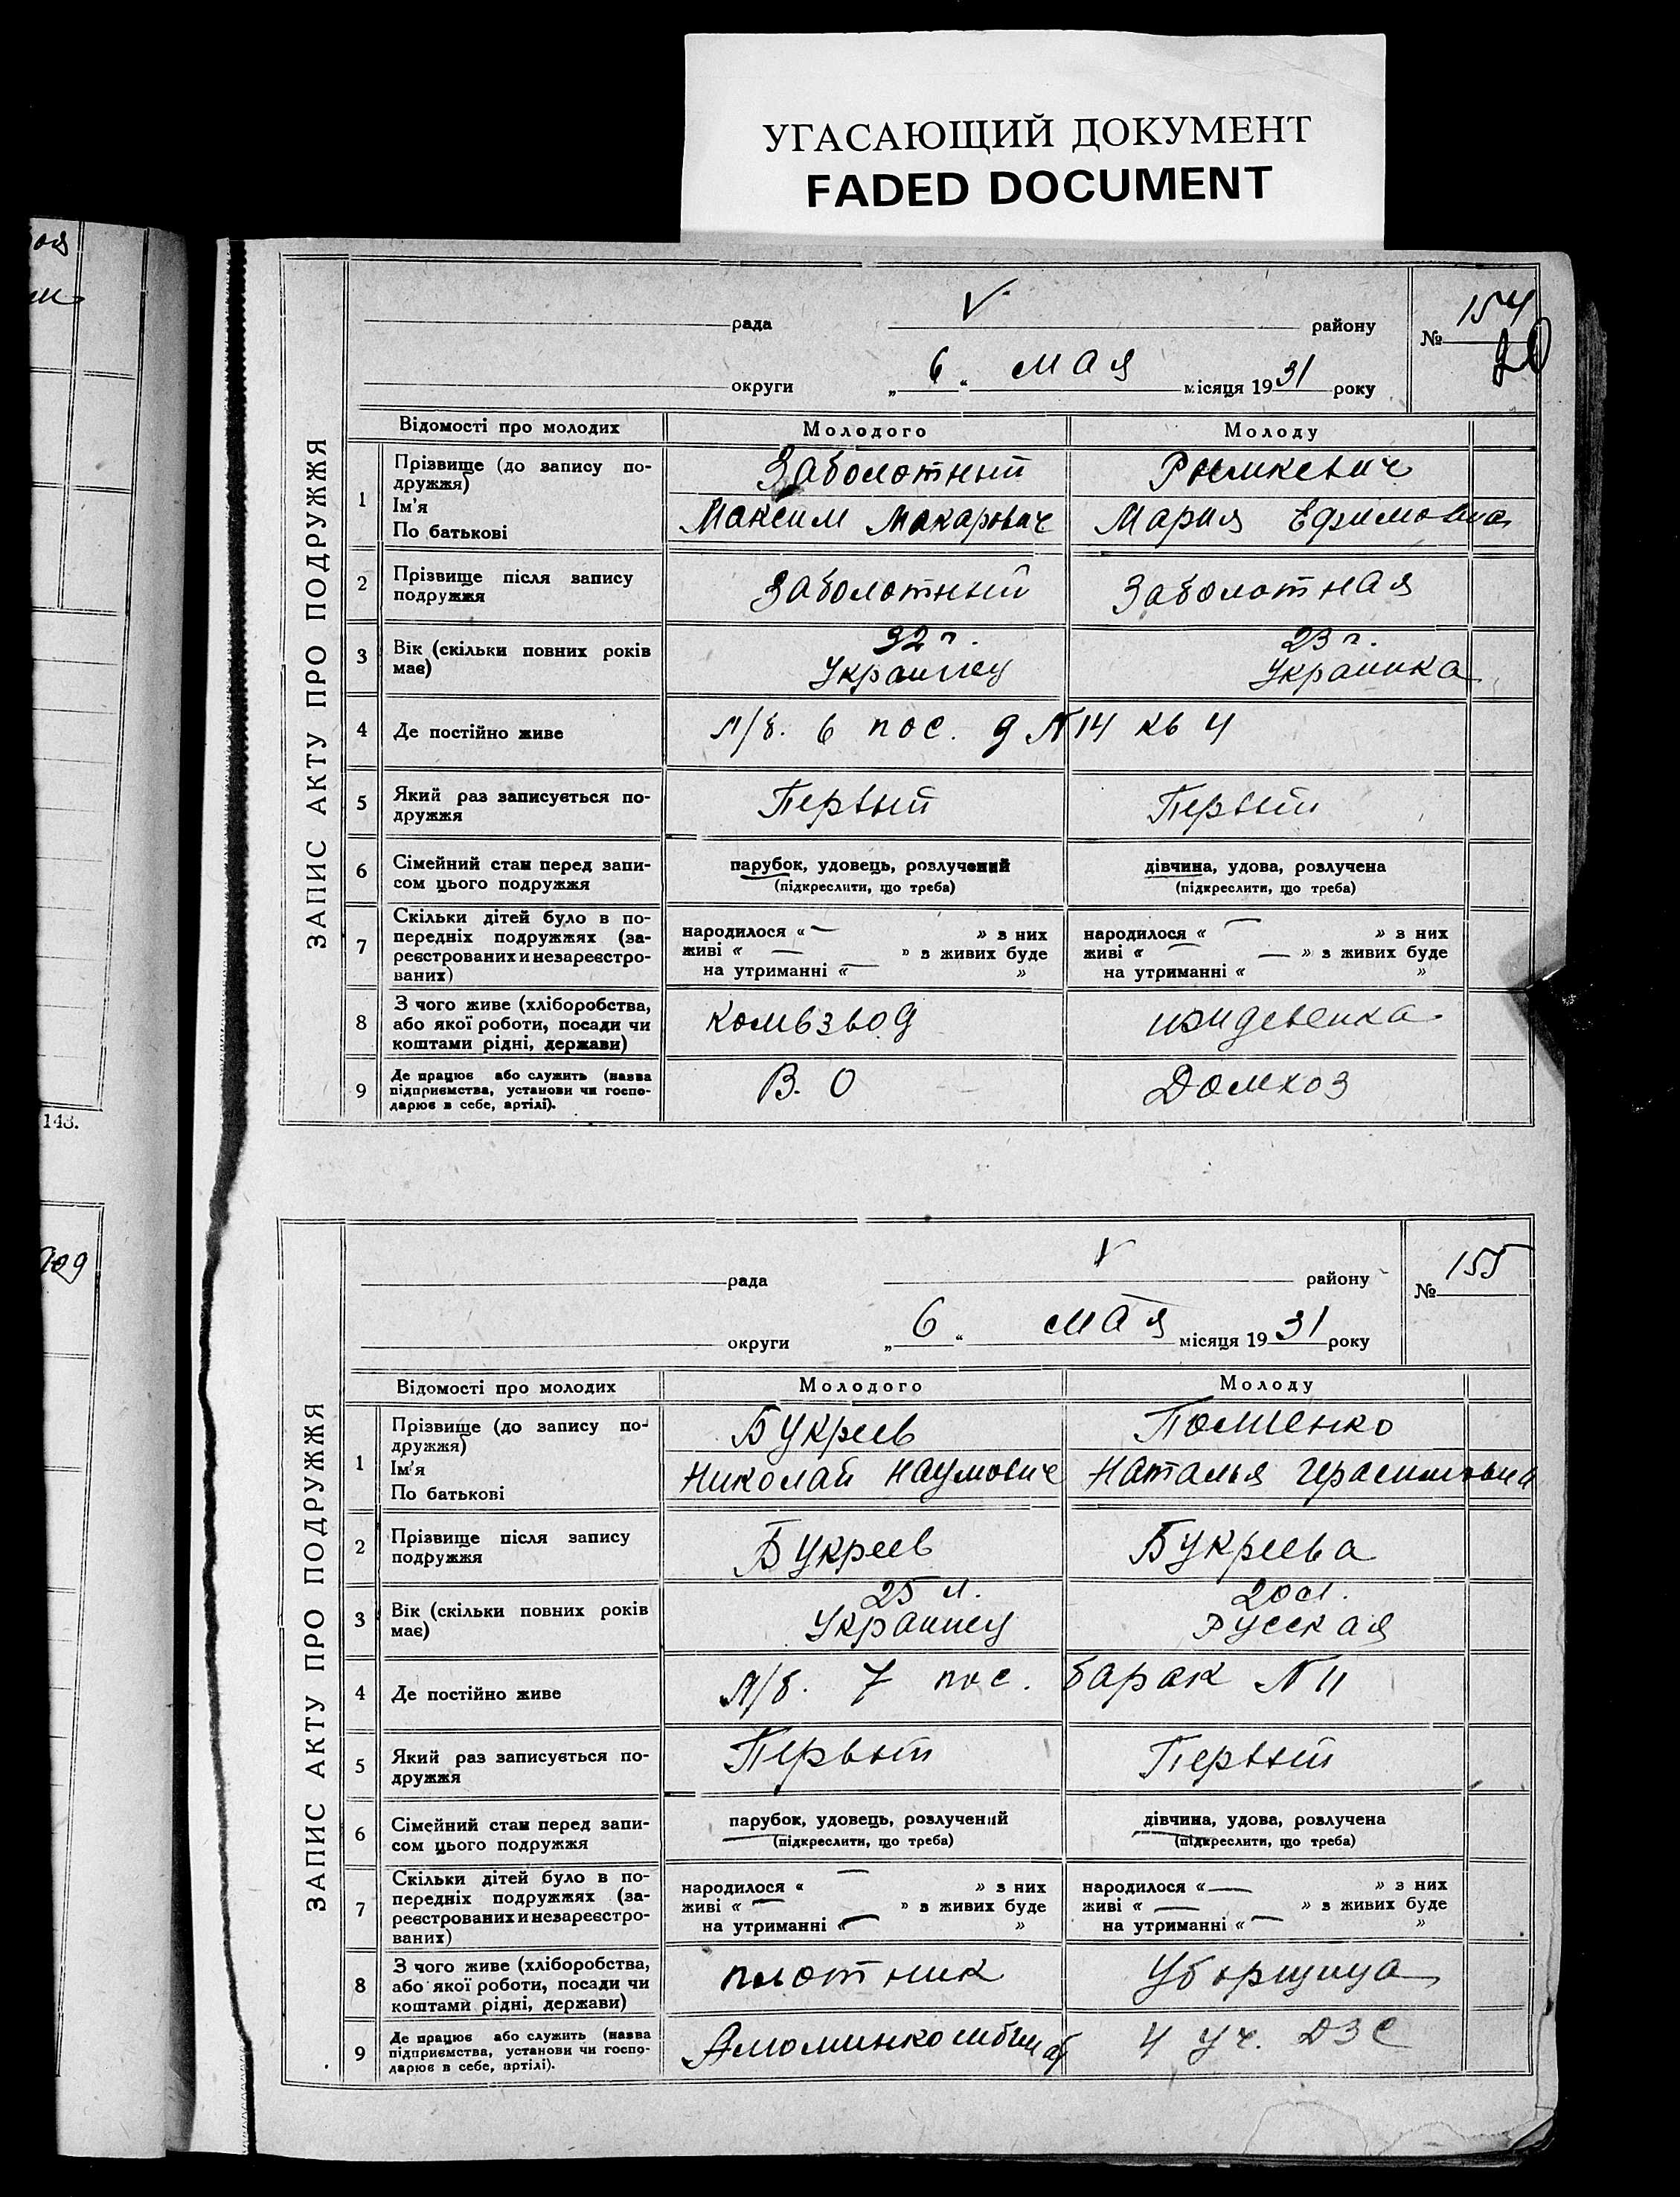 УГАСАЮЩИЙ ДОКУМЕНТ
FADED DOCUMENT
143.
ЗАПИС АКТУ ПРО ПОДРУЖЖЯ
рада V району
№ 154
округи „ 6 “ мая місяця 1931 року
Відомості про молодих Молодого Молоду
1 Прізвище (до запису по-
дружжя)
Ім'я
По батькові
Заболотный
Максим Макарович
Рымкевич
Мария Ефимовна
2 Прізвище після запису
подружжя
Заболотный Заболотная
3 Вік (скільки повних років
має)
32 г. 23 г.
Украинец Украинка
4 Де постійно живе л/б. 6 пос. д N 14 кв 4
5 Який раз записується по-
дружжя
Первый Первый
6 Сімейний стан перед запи-
сом цього подружжя
парубок, удовець, розлучений
(підкреслити, що треба)
дівчина, удова, розлучена
(підкреслити, що треба)
7 Скільки дітей було в по-
передніх подружжях (за-
реєстрованих и незареєстро-
ваних)
народилося « — » з них
живі « — » з живих буде
на утриманні « — »
народилося « — » з них
живі « — — » з живих буде
на утриманні « »
8 З чого живе (хліборобства,
або якої роботи, посади чи
коштами рідні, держави)
комвзвод иждевенка
9 Де працює або служить (назва
підприємства, установи чи госпо-
дарює в себе, артілі).
В. О Домхоз
ЗАПИС АКТУ ПРО ПОДРУЖЖЯ
рада V району
№ 155
округи „ 6 “ мая місяця 1931 року
Відомості про молодих Молодого Молоду
1 Прізвище (до запису по-
дружжя)
Ім'я
По батькові
Букреев
Николай Наумович
Наталья Герасимовна
2 Прізвище після запису
подружжя
Букреев Букреева
3 Вік (скільки повних років
має)
25 л. 20 л.
Украинец Русская
4 Де постійно живе л/б. 7 пос. барак N 11
5 Який раз записується по-
дружжя
Первый Первый
6 Сімейний стан перед запи-
сом цього подружжя
парубок, удовець, розлучений
(підкреслити, що треба)
дівчина, удова, розлучена
(підкреслити, що треба)
7 Скільки дітей було в по-
передніх подружжях (за-
реєстрованих и незареєстро-
ваних)
народилося « — » з них
живі « — » з живих буде
на утриманні « — »
народилося « — » з них
живі « — » з живих буде
на утриманні « — »
8 З чого живе (хліборобства,
або якої роботи, посади чи
коштами рідні, держави)
плотник Уборщица
9 Де працює або служить (назва
підприємства, установи чи госпо-
дарює в себе, артілі).
Алюминкомбинат 4 уч. ДЗС